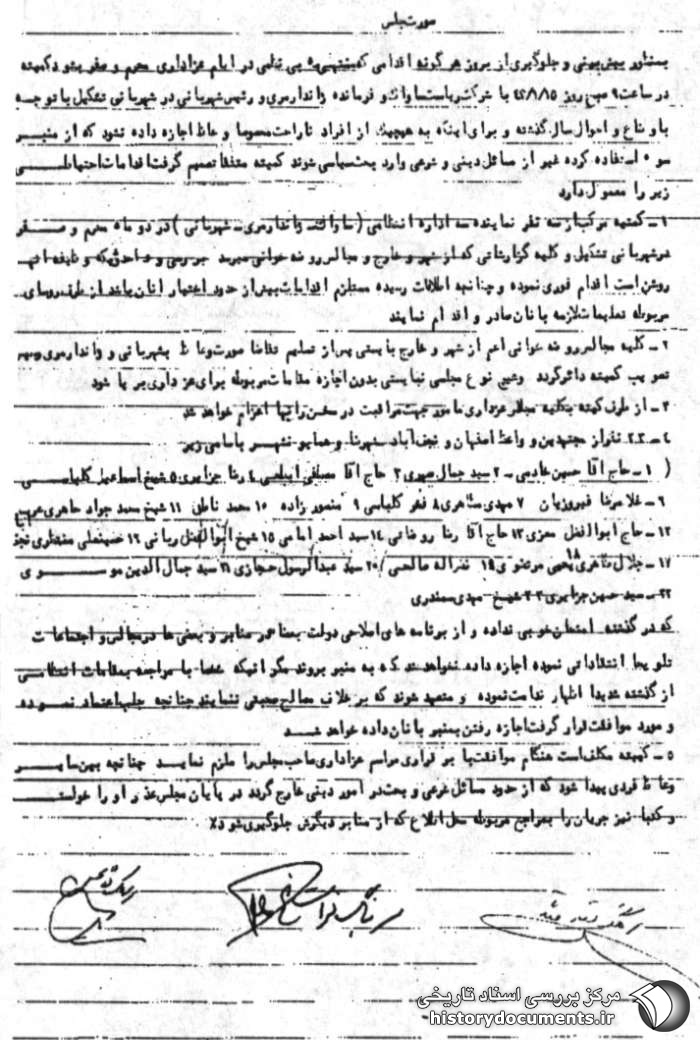 صورتجلس
بمنظور پیش‌بینی و جلوگیری از بروز هرگونه اقدامی که منتهی به بی نظمی در ایام عزاداری محرم و صفر بشود کمیته
در ساعت ۹ صبح روز با شرکت ریاست ساواک و فرمانده ژاندارمری و رئیس شهربانی در شهربانی تشکیل با توجه
باوضاع و احوال سال گذشته و برای اینکه به هیچیک از افراد ناراحت مخصوصا وعاظ اجازه داده نشود که از منبر
سوء استفاده کرده غیر از مسائل دینی و شرعی وارد بحث سیاسی شوند کمیته متفقا تصمیم گرفت اقدامات احتیاطی
زیر را معمول دارد
۱ـ کمیته مرکب از سه نفر نماینده سه اداره انتظامی (ساواک ژاندارمری ـ شهربانی) در دو ماه محرم و صفر
در شهربانی تشکیل و کلیه گزارشاتی که از شهر و خارج و مجالس روضه خوانی میرسد بررسی و هر وظیفه آنها
روشن است اقدام فوری نموده و چنانچه اطلاعات رسیده مستلزم اقدامات بیش از حدود اختیار آنان باشد از طرف روسای
مربوطه تعلیمات لازمه بآنان صادر و اقدام نمایند
۲ـ کلیه مجالس روضه خوانی اعم از شهر و خارج بایستی پس از تسلیم تقاضا صورت وعاظ بشهربانی و ژاندارمری و
تصویب کمیته دائر گردد و هیچ نوع مجلسی نبایستی بدون اجازه مقامات مربوطه برای عزاداری برپا شود
۳ـ از طرف کمیته بکلیه مجالس عزاداری مامور جهت مراقبت در سخنرانیها اعزام خواهد شد
۴ـ ۲۳ نفر از مجتهدین و وعاظ اصفهان و نجف‌آباد شهرضا و همایونشهر باسامی زیر
( ۱ـ حاج آقا حسین خادمی ـ ۲ سید جمال صهری ۳ حاج آقا مصطفی ۴ رضا جزایری ۵ شیخ اسماعیل کلباسی
۶ـ غلامرضا فیروزیان ۷ مهدی مظاهری ۸ فخر کلباسی ۹ منصور زاده ۱۰ محمد ناطق ۱۱ شیخ محمد جواد
۱۲ـ حاج ابوالفضل معزی ۱۳ حاج آقا رضا روضاتی ۱۴ سید احمد امامی ۱۵ شیخ ابوالفضل ربانی ۱۶ حسینعلی منتظری
۱۷ـ جلال طاهری ۱۸ یحیی مرتضوی ۱۹ نصراله صالحی / ۲۰ سید عبدالرسول حجازی ۲۱ سید جمال الدین موسوی
۲۲ـ سید حسین جزایری ۲۳ شیخ مهدی
که در گذشته امتحان خوبی نداده و از برنامه های اصلاحی دولت بعضا در منابر و بعضی ها در مجالس و اجتماعات
تلویحا انتقاداتی نموده اجازه داده نخواهد شد که به منبر بروند مگر آنکه شخصا با مراجعه بمقامات انتظامی
از گذشته شدیدا اظهار ندامت نموده و متعهد شوند که برخلاف مصالح صحبتی ننمایند چنانچه جلب اعتماد نموده
و مورد موافقت قرار گرفت اجازه رفتن بمنبر بآنان داده خواهد شد
۵ـ کمیته مکلف است هنگام موافقت با برقراری مراسم عزاداری صاحب مجلس را ملزم نماید چنانچه بین سایر
وعاظ فردی پیدا شود که از حدود مسائل شرعی و بحث در امور دینی خارج گردد در پایان مجلس عذر او را خواسته
و کتبا نیز جریان را بمراجع مربوطه محل اطلاع که از منابر دیگرش جلوگیری شود
مرکز بررسی اسناد تاریخی
historydocuments.ir